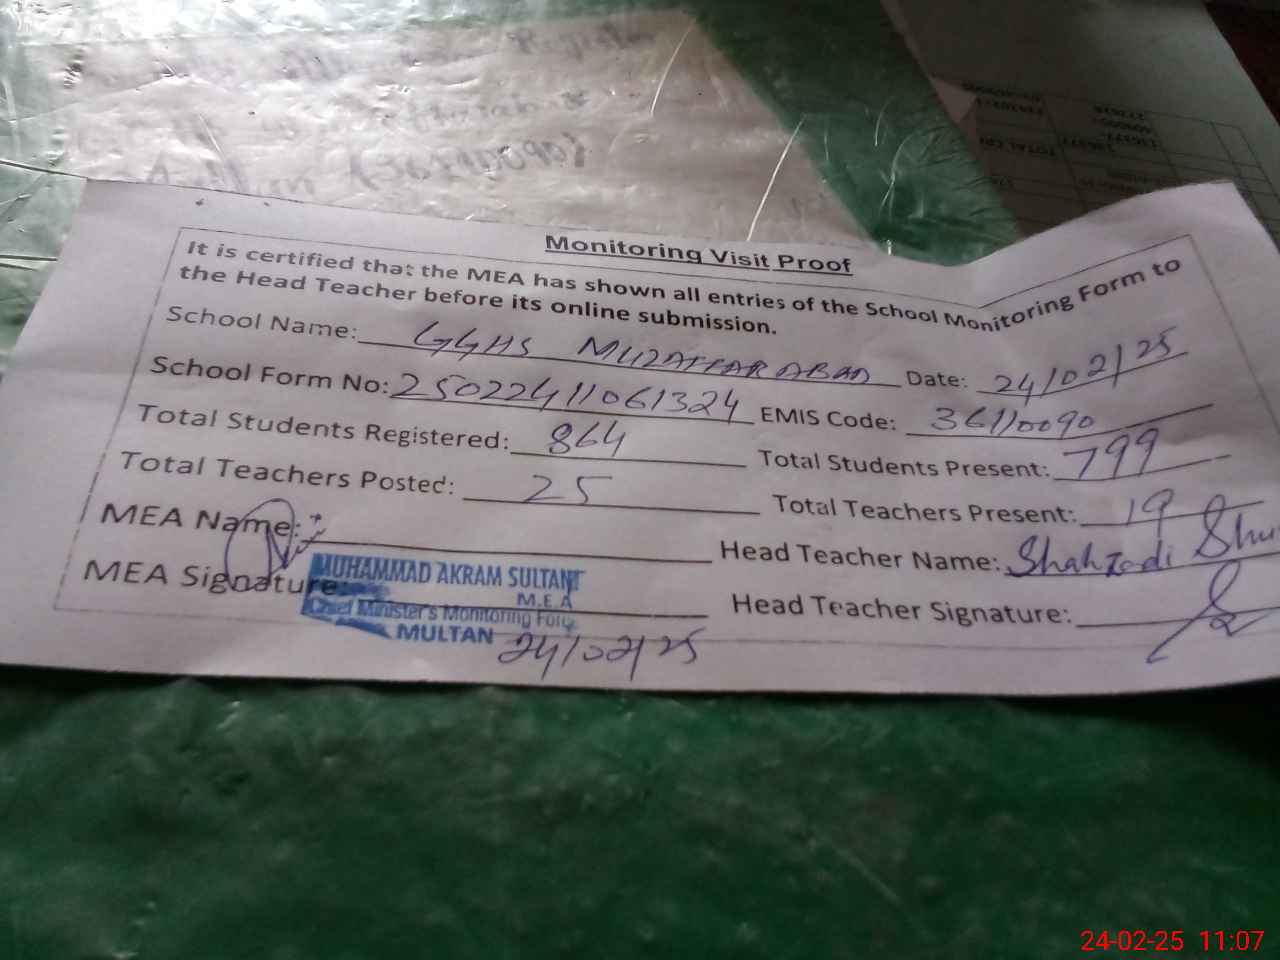 (36110090)
Monitoring Visit Proof
It is certified that the MEA has shown all entries of the School Monitoring Form to
the Head Teacher before its online submission.
School Name: GGHS MUZAFFAR ABAD Date: 24/02/25
School Form No: 25022411061324 EMIS Code: 36110090
Total Students Registered: 864 Total Students Present: 799
Total Teachers Posted: 25 Total Teachers Present: 19
MEA Name: Head Teacher Name: Shahzadi
MEA Signature: Head Teacher Signature:
MUHAMMAD AKRAM SULTANI
M.E.A
Chief Minister's Monitoring Force
MULTAN 24/02/25
24-02-25 11:07